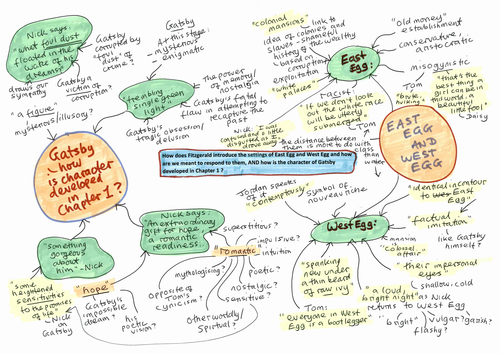 Nick says:
"what foul dust
floated in the
wake of his
dreams"
draws our
sympathy
Gatsby
corrupted by
"foul" dust of
crime?
Gatsby a
victim of
corruption?
"a figure"
mysterious/illusory?
Gatsby
- how
is character
developed
in
Chapter 1?
Gatsby
At this stage:
- mysterious
- enigmatic
"trembling
single green
light"
- the power
of memory/
nostalgia
Gatsby's fatal
flaw in attempting
to recapture
the past
Gatsby's
tragic obsession/
delusion
"colonial
mansions" - link to
idea of colonies and
slaves - shameful
history of the wealthy
- based on
corruption,
exploitation
"white
palaces"
East
Egg:
"old money"
establishment
conservative,
aristocratic
misogynistic
Tom
"brute,
hulking"
"that's the
best thing a
girl can be in
this world, a
beautiful
little fool"
- Daisy
Racist
"If we don't look
out the white race
will be utterly
submerged"
- Tom
Nick: "I was
confused and a little
disgusted as I
drove away"
the distance between
them is more to do with
class
than
water
EAST
EGG
AND
WEST
EGG
How does Fitzgerald introduce the settings of East Egg and West Egg and how
are we meant to respond to them, AND how is the character of Gatsby
developed in Chapter 1 ?
Jordan speaks
of it
"contemptuously".
symbol of
nouveau riche
West Egg:
"identical in contour
to East Egg"
"factual
imitation"
mansion
"colossal
affair"
like Gatsby
himself?
"their impersonal
eyes"
shallow, cold
"a loud,
bright night" as Nick
returns to West Egg
"bright"
vulgar?
garish?
flashy?
"spanking
new under
a thin beard
of raw ivy"
Tom:
"everyone in West
Egg is a bootlegger"
Nick says:
"An extraordinary
gift for hope, a
romantic
readiness.."
superstitious?
impulsive?
"romantic"
intuition
mythologising?
poetic?
opposite of
Tom's
cynicism?
nostalgic?
sensitive?
Otherworldly/
Spiritual?
"something
gorgeous
about
him" - Nick
"some
heightened
sensitivities
to the promises
of life"
- Nick
on
Gatsby
"hope"
Gatsby's
impossible
dream?
his
poetic
vision?